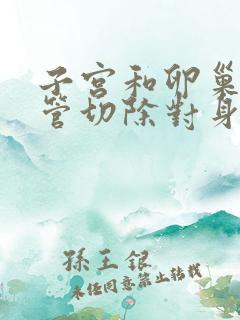 子宮和卵巢
管切除對身
孫玉銀
未经同意禁止转载